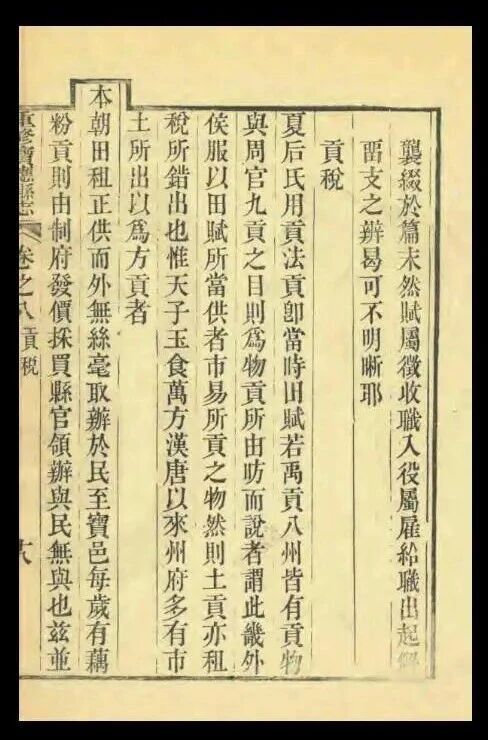 襲綴於篇末然賦屬徵收職入役屬雇給職出起解
畱支之辨曷可不明晰耶
貢稅
夏后氏用貢法貢卽當時田賦若禹貢八州皆有貢物
與周官九貢之目則爲物貢所由昉而說者謂此畿外
侯服以田賦所當供者市易所貢之物然則土貢亦租
稅所錯出也惟天子玉食萬方漢唐以來州府多有市
土所出以爲方貢者
本朝田租正供而外無絲毫取辦於民至寶邑每歲有藕
粉貢則由制府發價採買縣官領辦與民無與也茲並
重修寶應縣志 卷之八 貢稅 十八